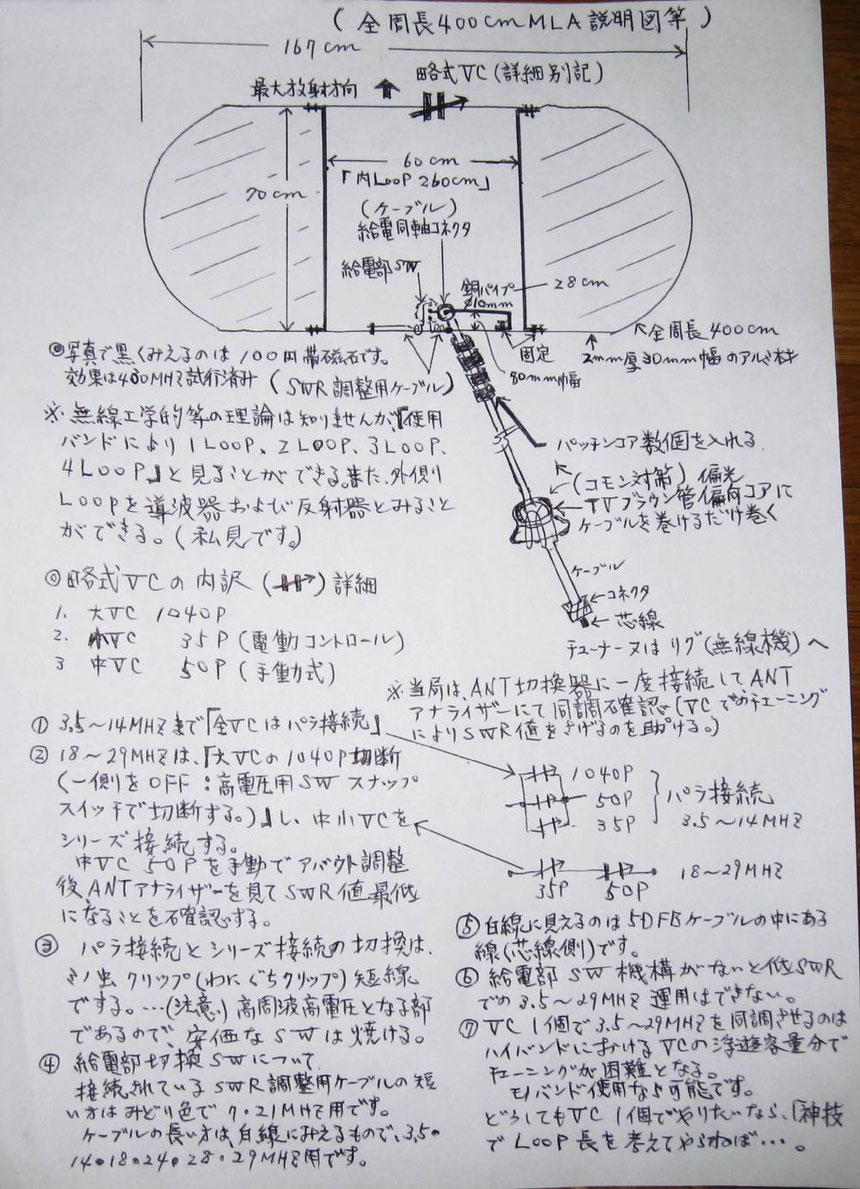 (全周長400cmMLA説明図等)
167cm
略式VC(詳細別記)
最大放射方向
60cm
「内LOOP 260cm」
70cm
(ケーブル)
給電同軸コネクタ
給電部SW
銅パイプ
φ10mm
28cm
全周長400cm
固定
2mm厚30mm幅のアルミ材
80mm幅
◎写真で黒くみえるのは100円帯磁石です。
効果は430MHZ試行済み(SWR調整用ケーブル)
※無線工学的等の理論は知りませんが『使用
バンドにより1LOOP、2LOOP、3LOOP、
4LOOP』と見ることができる。また、外側り
LOOPを導波器および反射器とみること
ができる。(私見です。)
パッチンコア数個を入れる
(コモン対策)偏光
TVブラウン管偏向コアに
ケーブルを巻けるだけ巻く
ケーブル
コネクタ
芯線
チューナー又はリグ(無線機)へ
◎略式VCの内訳()詳細
1. 大VC 1040P
2. 小VC 35P(電動コントロール)
3 中VC 50P(手動式)
※当局は、ANT切換器に一度接続してANT
アナライザーにて同調確認(VCでのチェーニング
によりSWR値を上げるのを助ける。)
① 3.5~14MHZまで『全VCはパラ接続』
② 18~29MHZは、『大VCの1040P切断
(一側をOFF:高電圧用SWスナップ
スイッチで切断する。)』し、中小VCを
シリーズ接続する。
中VC 50Pを手動でアバウト調整
後ANTアナライザーを見てSWR値最低
になることを確認する。
1040P
50P
35P
パラ接続
3.5~14MHZ
18~29MHZ
35P 50P
③ パラ接続とシリーズ接続の切換は、
ミノ虫クリップ(わにぐちクリップ)短線
でする。…(注意)高周波高電圧となる部
であるので、安価なSWは焼ける。
④ 給電部切換SWについて
接続されているSWR調整用ケーブルの短
い方はみどり色で7・21MHZ用です。
ケーブルの長い方は、白線にみえるもので、3.5・
14・18・24・28・29MHZ用です。
⑤ 白線に見えるのは5DFBケーブルの中にある
線(芯線側)です。
⑥ 給電部SW機構がないと低SWR
での3.5~29MHZ運用はできない。
⑦ VC1個で3.5~29MHZを同調させるのは
ハイバンドにおけるVCの浮遊容量分で
チェーニングが困難となる。
モノバンド使用なら可能です。
どうしてもVC1個でやりたいなら、「神技
でLOOP長を考えてやらねば…。